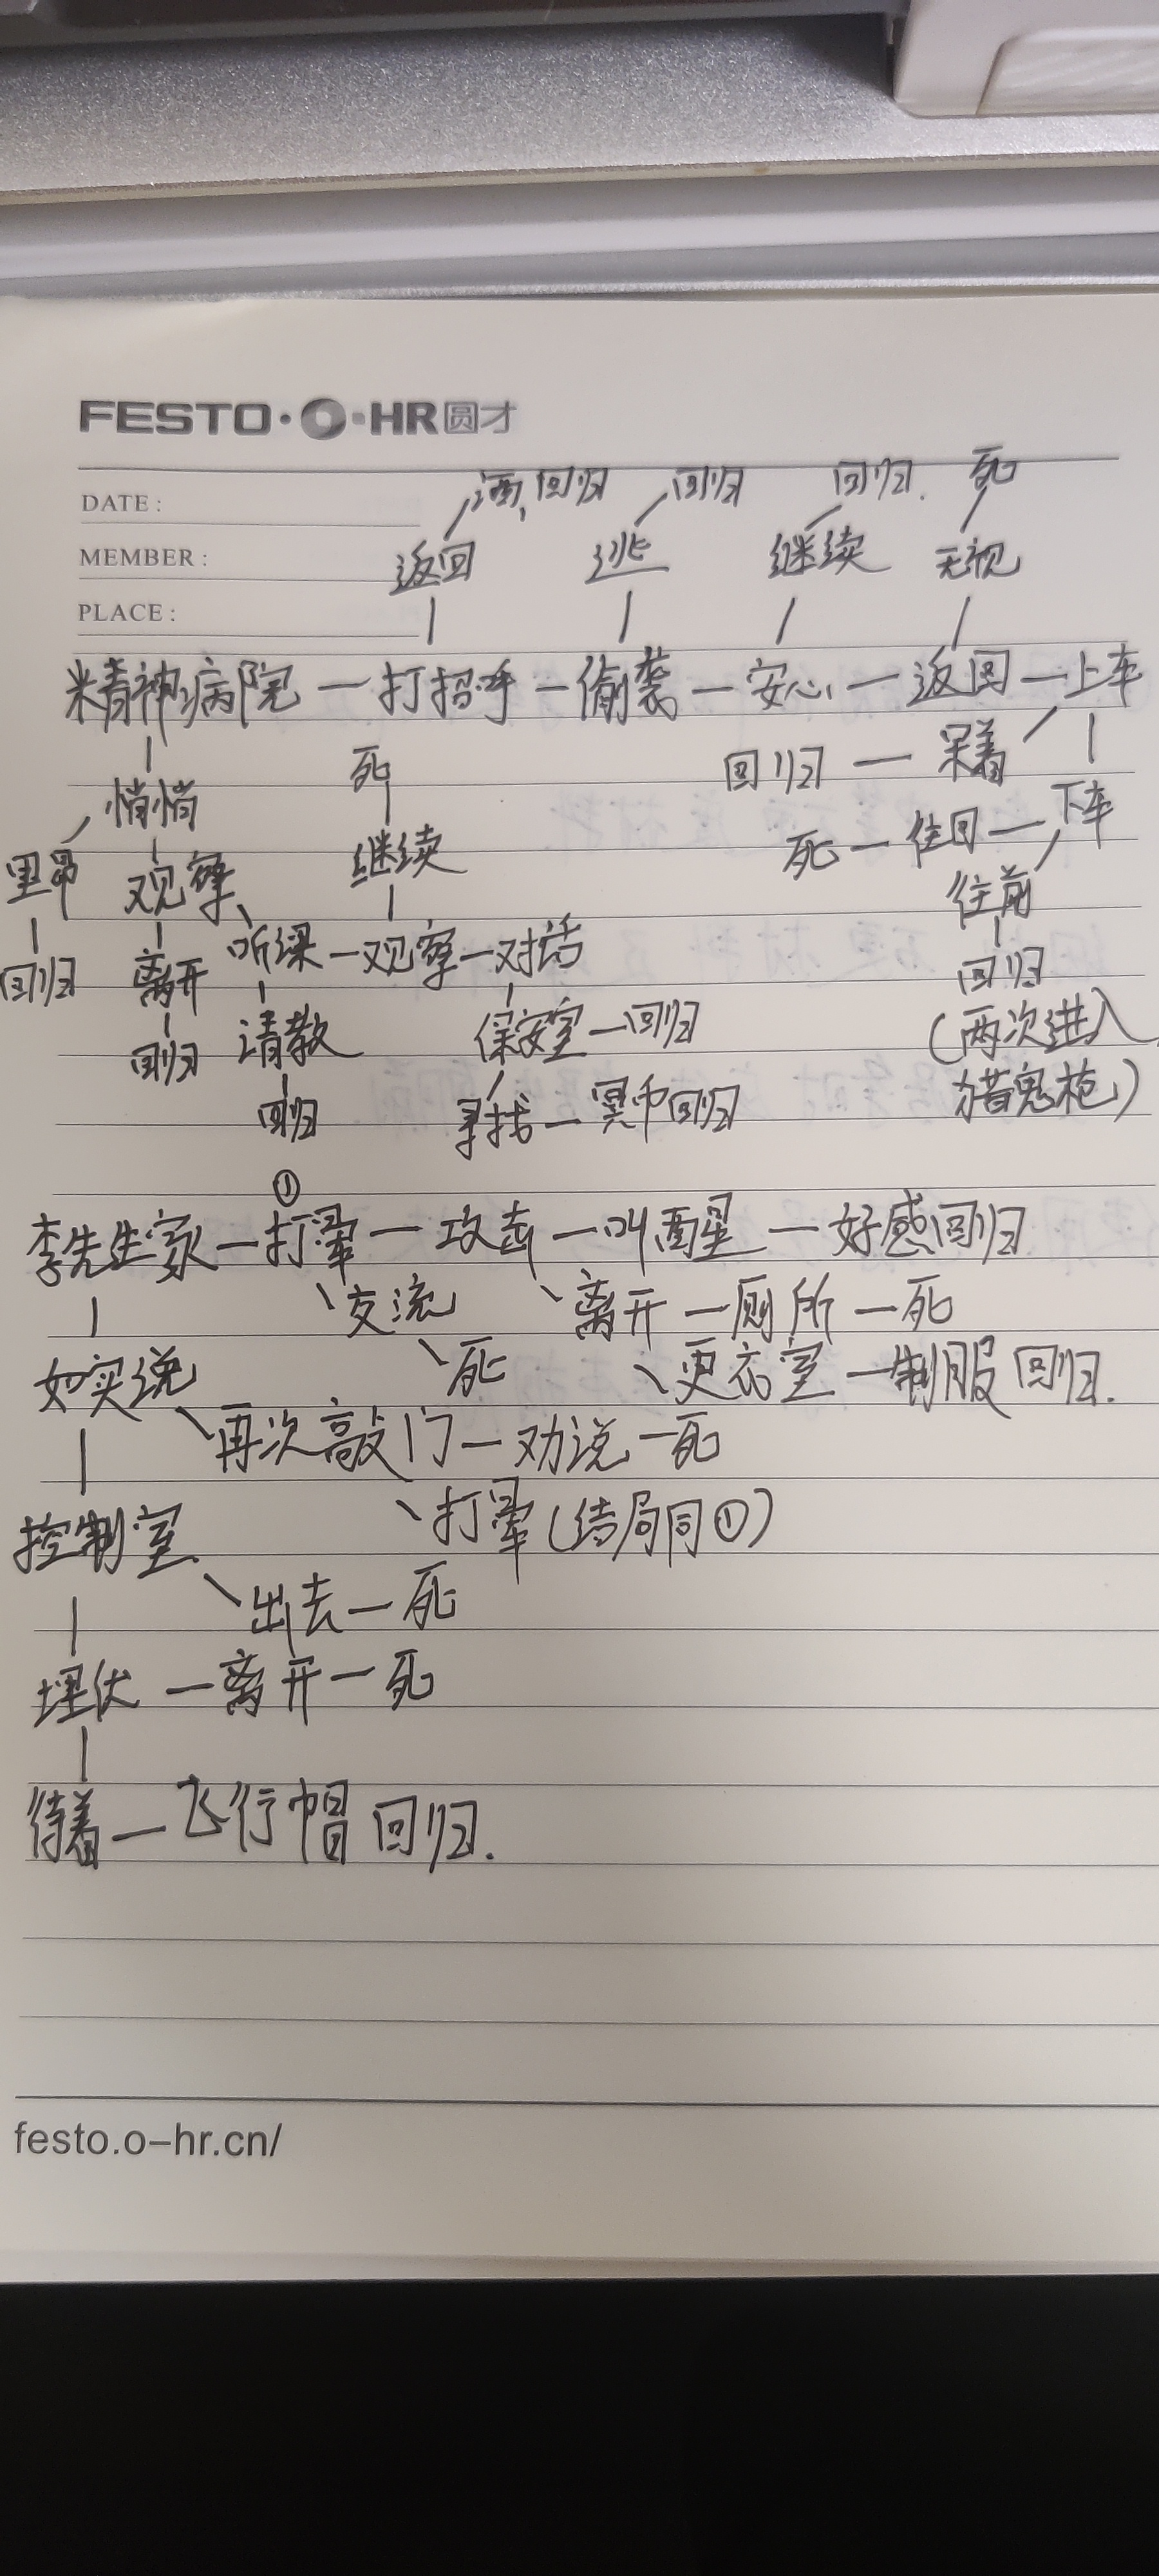 FESTO·O·HR圆才
酒,回归 回归 回归. 死
DATE:
MEMBER: 返回 逃 继续 无视
PLACE:
精神病院—打招呼—偷袭—安心—返回—上车
死 回归—呆着
悄悄 死—往回—下车
里昂 观察 继续 往前
回归 离开 听课—观察—对话 回归
回归 请教 保安室—回归 (两次进入
回归 寻找—冥币回归 猎鬼枪)
①
李先生家—打晕—攻击—叫醒—好感回归
交流 离开—厕所—死
如实说 死 更衣室—制服回归.
再次敲门—劝说—死
控制室 打晕(结局同①)
出去—死
埋伏—离开—死
待着—飞行帽回归.
festo.o-hr.cn/